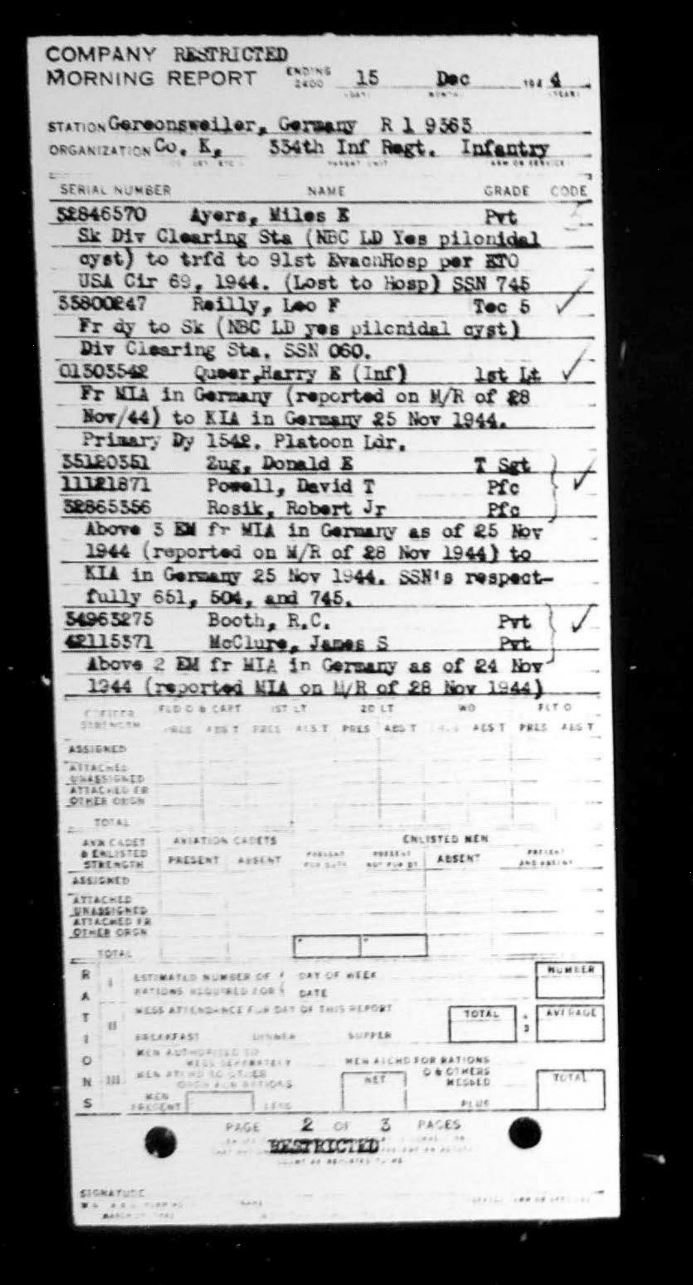 COMPANY RESTRICTED
MORNING REPORT ENDING 2400 15 Dec 1944
(DAY) (MONTH) (YEAR)
STATION Gereonsweiler, Germany R 1 9563
ORGANIZATION Co. K, 334th Inf Regt. Infantry
PARENT UNIT ARM OR SERVICE
SERIAL NUMBER NAME GRADE CODE
32846570 Ayers, Miles E Pvt
Sk Div Clearing Sta (NBC LD Yes pilonidal
cyst) to trfd to 91st EvacnHosp per ETO
USA Cir 69, 1944. (Lost to Hosp) SSN 745
35800247 Reilly, Leo F Tec 5
Fr dy to Sk (NBC LD yes pilonidal cyst)
Div Clearing Sta. SSN 060.
01303542 Queer,Harry E (Inf) 1st Lt
Fr MIA in Germany (reported on M/R of 28
Nov/44) to KIA in Germany 25 Nov 1944.
Primary Dy 1542. Platoon Ldr.
35120351 Zug, Donald E T Sgt
11121871 Powell, David T Pfc
32865356 Rosik, Robert Jr Pfc
Above 3 EM fr MIA in Germany as of 25 Nov
1944 (reported on M/R of 28 Nov 1944) to
KIA in Germany 25 Nov 1944. SSN's respect-
fully 651, 504, and 745.
34963275 Booth, R.C. Pvt
42115371 McClure, James S Pvt
Above 2 EM fr MIA in Germany as of 24 Nov
1944 (reported MIA on M/R of 28 Nov 1944)
OFFICER STRENGTH FLD O & CAPT 1ST LT 2D LT WO FLT O
PRES ABS T PRES ABS T PRES ABS T ABS T PRES ABS T
ASSIGNED
ATTACHED UNASSIGNED
ATTACHED FR OTHER ORGN
TOTAL
AVN CADET & ENLISTED STRENGTH AVIATION CADETS ENLISTED MEN
PRESENT ABSENT PRESENT FOR DUTY PRESENT NOT FOR DY ABSENT PRESENT AND ABSENT
ASSIGNED
ATTACHED UNASSIGNED
ATTACHED FR OTHER ORGN
TOTAL
RATIONS
I ESTIMATED NUMBER OF RATIONS REQUIRED FOR DAY OF WEEK DATE NUMBER
II MESS ATTENDANCE FOR DAY OF THIS REPORT TOTAL ÷ 3 AVERAGE
BREAKFAST DINNER SUPPER
III MEN AUTHORIZED TO MESS SEPARATELY MEN ATCHD FOR RATIONS
MEN ATCHD TO OTHER ORGN FOR RATIONS NET & OTHERS MESSED TOTAL
MEN PRESENT LESS PLUS
PAGE 2 OF 3 PAGES
RESTRICTED
SIGNATURE